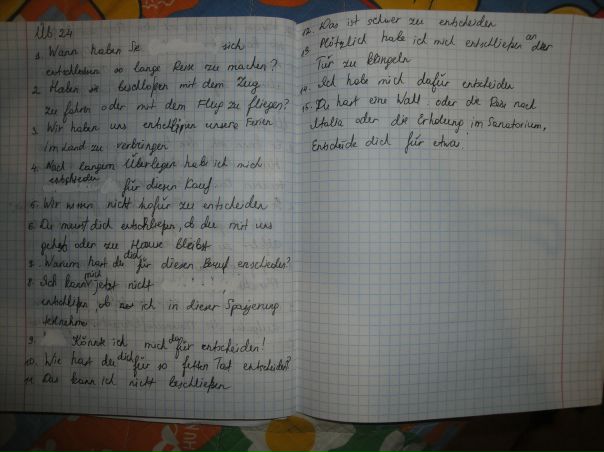 Üb 24
1. Wann haben Sie sich
entschlossen so lange Reise zu machen?
2. Haben sie beschloßen mit dem Zug
zu fahren oder mit dem Flug zu fliegen?
3. Wir haben uns unsere Ferien
im Land zu verbringen
4. Nach langem Überlegen habe ich mich
entschieden für diesen Kauf.
5. Wir nicht wofür zu entscheiden
6. Du must dich entschließen, ob du mit uns
gehst oder zu Hause bleibst
7. Warum hast du dich für diesen Beruf entschieden?
8. Ich kann mich jetzt nicht
entschlißen, ob ich in dieser
teilnehme
9. Könnte ich mich dafür entscheiden!
10. Wie hast du dich für so fetten entscheiden?
11. Das kann ich nicht beschließen
12. Das ist schwer zu entscheiden
13. Plötzlich habe ich mich entschließen an der
Tür zu klingeln
14. Ich habe mich dafür entscheiden
15. Du hast eine Wahl: oder die Reise nach
Italia oder die Erholung im Sanatorium.
Entscheide dich für etwas!